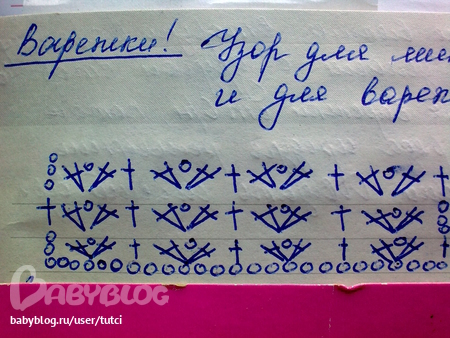 Варежки! Узор для
и для
BABYBLOG
babyblog.ru/user/tutci